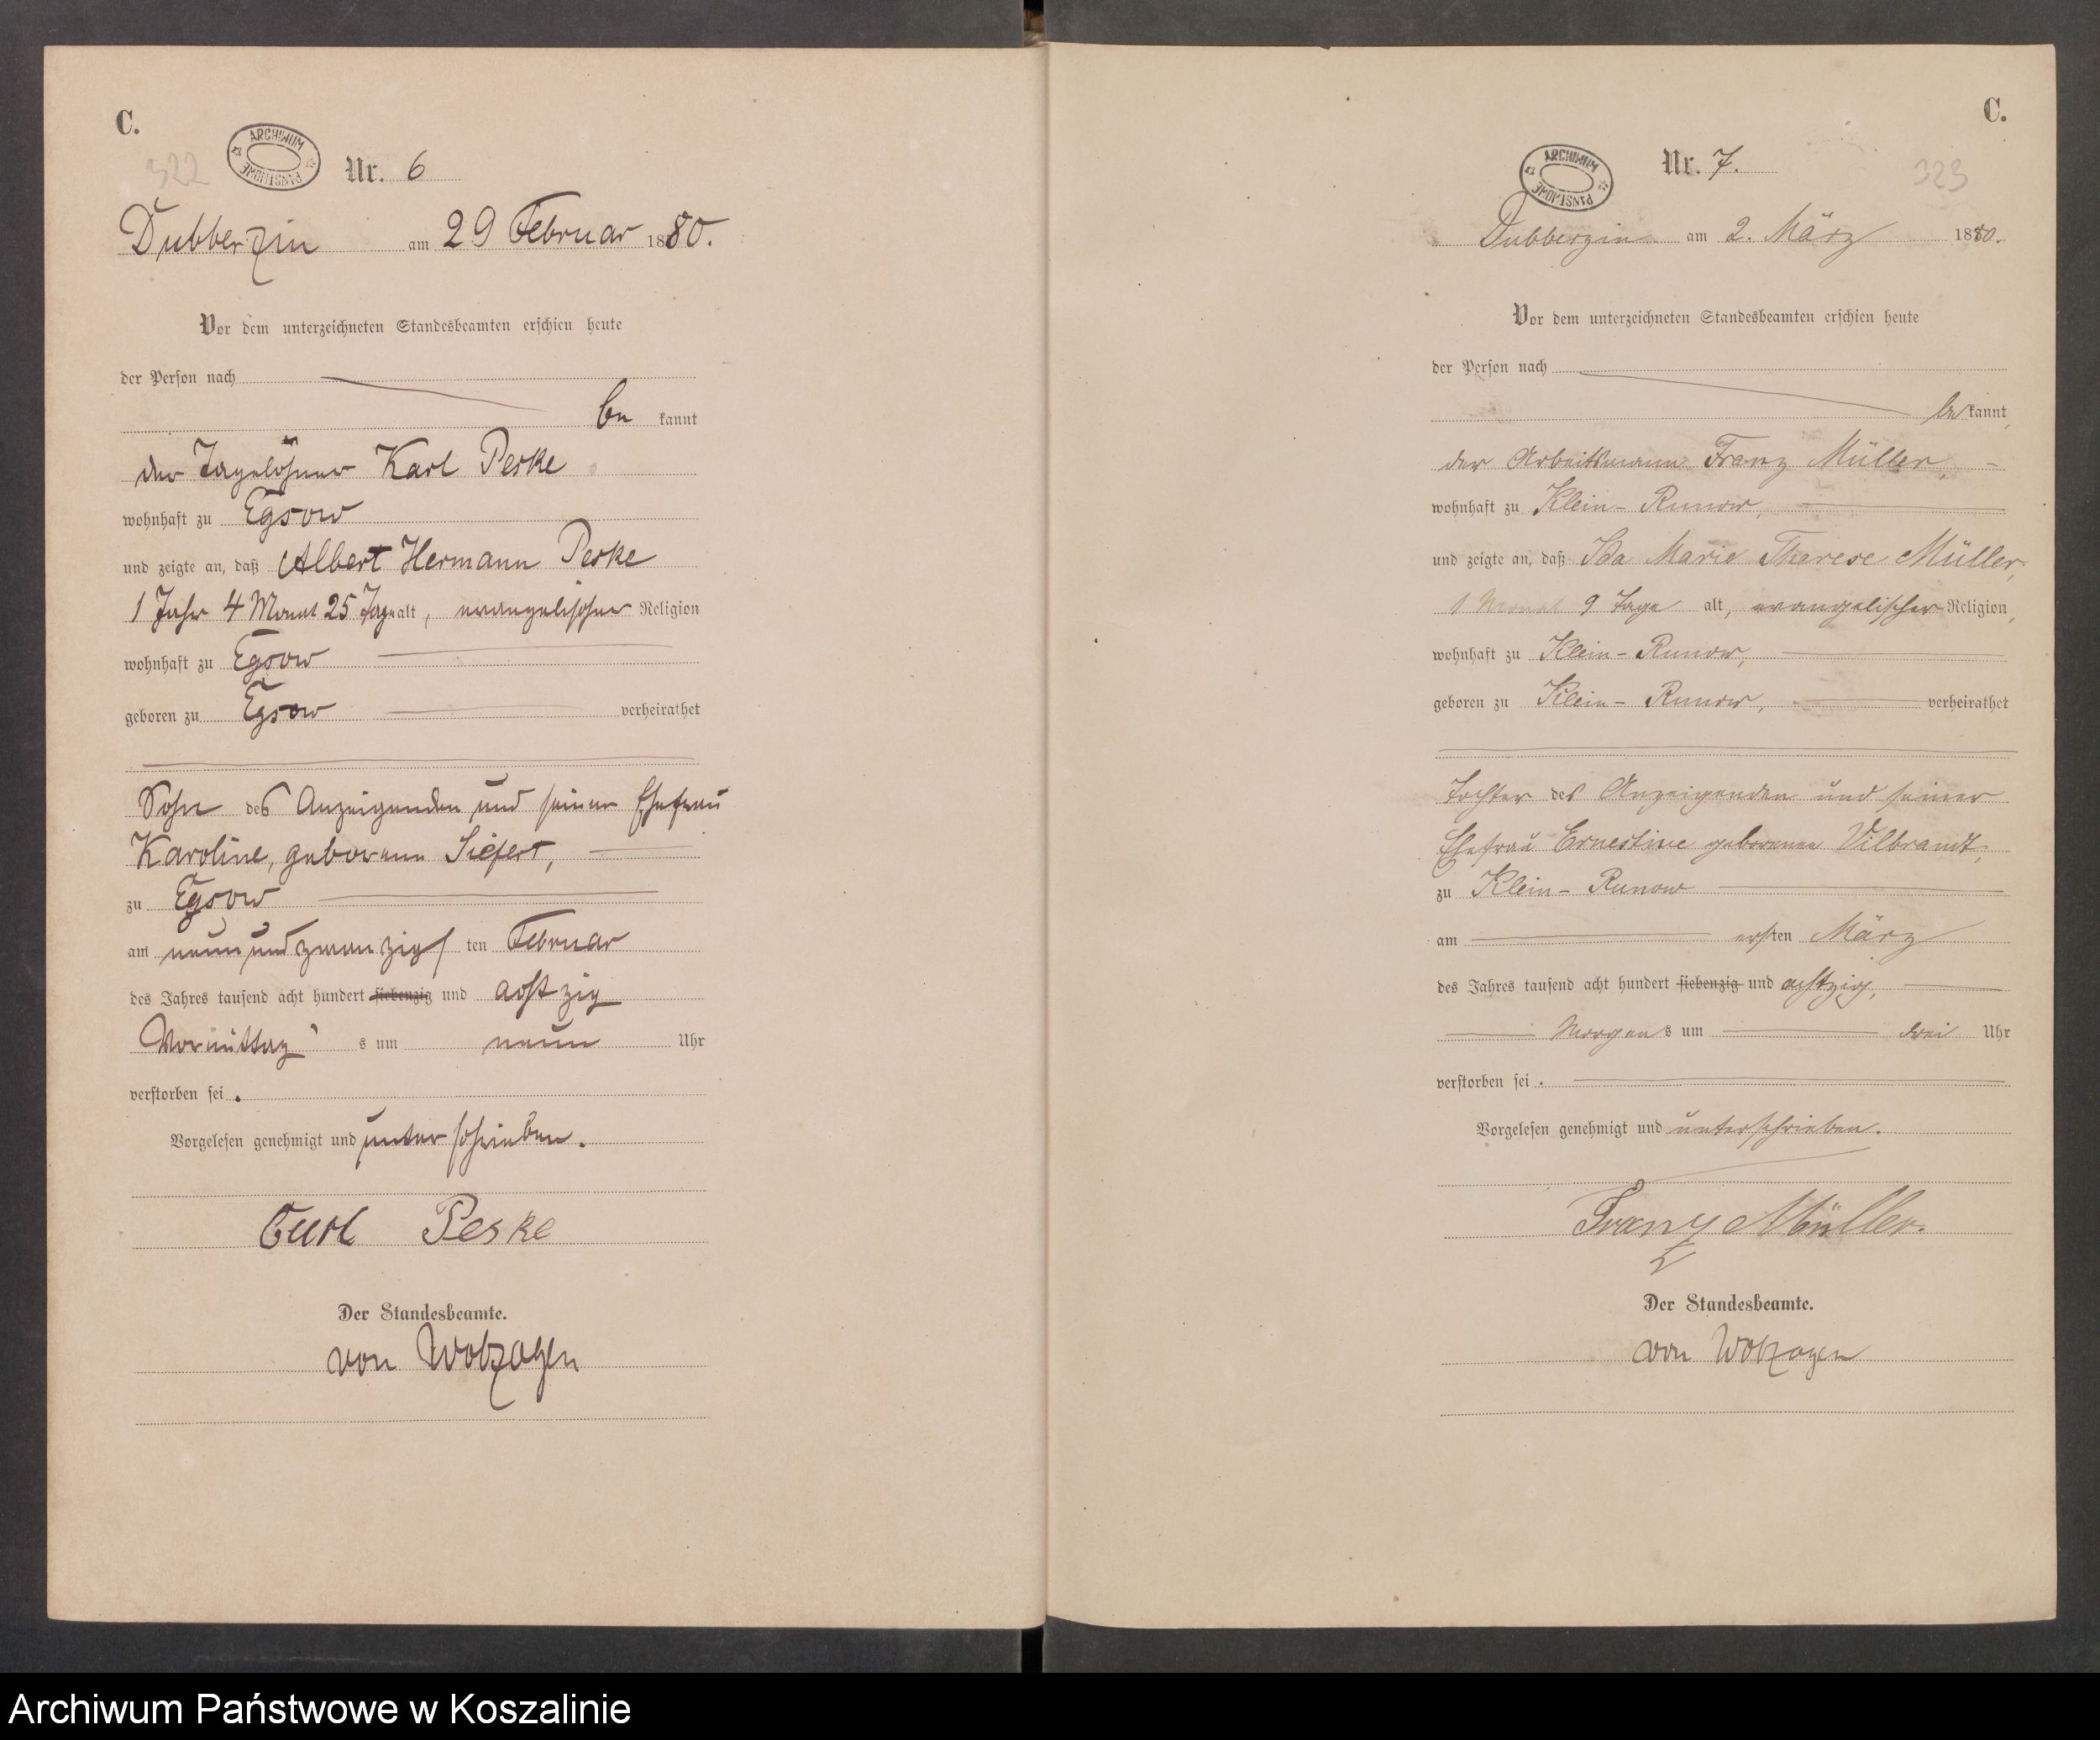 C.
322
ARCHIWUM PAŃSTWOWE
Nr. 6
Dubberzin am 29 Februar 1880.
Vor dem unterzeichneten Standesbeamten erschien heute
der Person nach
be kannt
der Tagelöhner Karl Peske
wohnhaft zu Egsow
und zeigte an, daß Albert Hermann Peske
1 Jahr 4 Monat 25 Tage alt, evangelischer Religion
wohnhaft zu Egsow
geboren zu Egsow verheirathet
Sohn des Anzeigenden und seiner Ehefrau
Karoline, geborenen Siefert,
zu Egsow
am neun und zwanzigs ten Februar
des Jahres tausend acht hundert siebenzig und achtzig
Vormittag s um neun Uhr
verstorben sei.
Vorgelesen genehmigt und unterschrieben.
Carl Peske
Der Standesbeamte.
von Wolzogen
C.
323
ARCHIWUM PAŃSTWOWE
Nr. 7.
Dubberzin am 2. März 1880.
Vor dem unterzeichneten Standesbeamten erschien heute
der Person nach
be kannt,
der Arbeitsmann Franz Müller,
wohnhaft zu Klein-Runow,
und zeigte an, daß Ida Marie Therese Müller,
1 Monat 9 Tage alt, evangelischer Religion,
wohnhaft zu Klein-Runow,
geboren zu Klein-Runow, verheirathet
Tochter des Anzeigenden und seiner
Ehefrau Ernestine geborenen Vilbrandt,
zu Klein-Runow
am ersten März
des Jahres tausend acht hundert siebenzig und achtzig,
Morgens um drei Uhr
verstorben sei.
Vorgelesen genehmigt und unterschrieben.
Franz Müller.
Der Standesbeamte.
von Wolzogen
Archiwum Państwowe w Koszalinie